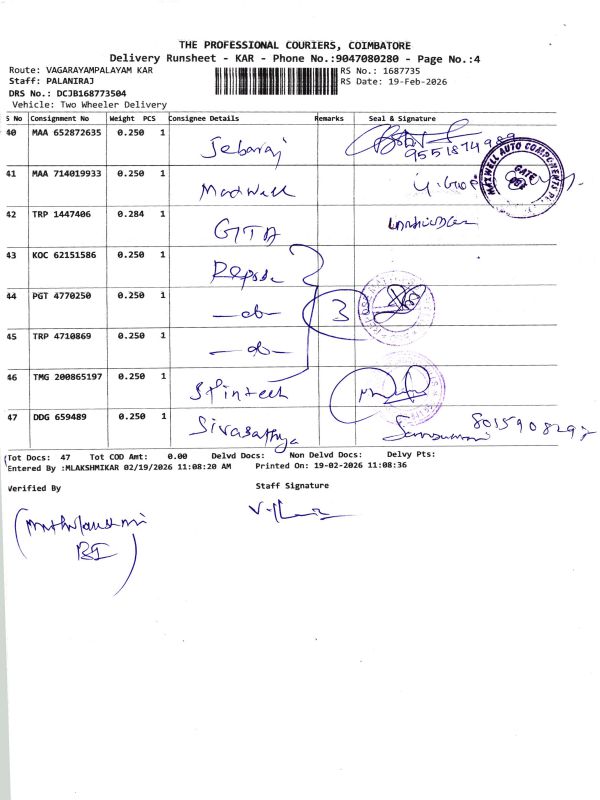 THE PROFESSIONAL COURIERS, COIMBATORE
Delivery Runsheet - KAR - Phone No.:9047080280 - Page No.:4
Route: VAGARAYAMPALAYAM KAR
RS No.: 1687735
Staff: PALANIRAJ
RS Date: 19-Feb-2026
DRS No.: DCJB168773504
Vehicle: Two Wheeler Delivery
S No Consignment No Weight PCS Consignee Details Remarks Seal & Signature
40 MAA 652872635 0.250 1 Jebaraj
41 MAA 714019933 0.250 1
MAXWELL AUTO COMPONENTS
GATE
42 TRP 1447406 0.284 1 GTA
43 KOC 62151586 0.250 1
44 PGT 4770250 0.250 1 —do— 3
45 TRP 4710869 0.250 1 —do—
46 TMG 200865197 0.250 1
47 DDG 659489 0.250 1 Sivasathya
Tot Docs: 47 Tot COD Amt: 0.00 Delvd Docs: Non Delvd Docs: Delvy Pts:
Entered By :MLAKSHMIKAR 02/19/2026 11:08:20 AM Printed On: 19-02-2026 11:08:36
Verified By
Staff Signature